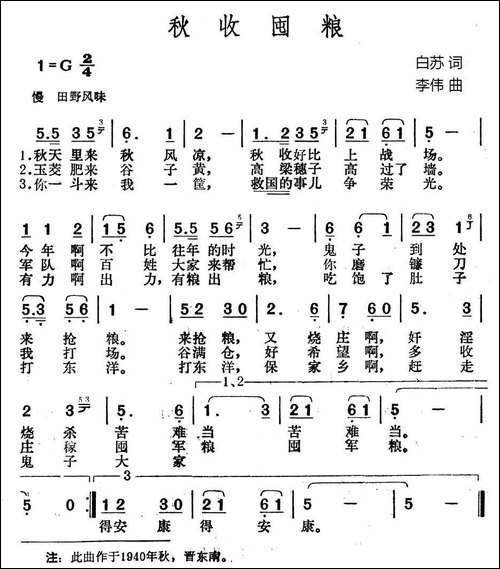 秋收囤粮
1=G 2/4
白苏 词
李伟 曲
慢 田野风味
5.5 35 6. 1 | 1.2 35 | 21 61 | 5 -
1.秋天里来秋风凉，秋收好比上战场。
2.玉茭肥来谷子黄，高粱穗子高过了墙。
3.你一斗来我一筐，救国的事儿争荣光。
1 1 2 | 15 6 | 5.5 56 | 3 - | 2 61 | 23 1
今年啊不比往年的时光，鬼子到处
军队啊百姓大家来帮忙，你磨镰刀
有力啊出力，有粮出粮，吃饱了肚子
5.3 56 | 1 - | 52 30 | 5. 6 | 7 60 | 5. 3
来抢粮。来抢粮，又烧庄啊，奸淫
我打场。谷满仓，好希望啊，多收
打东洋。打东洋，保家乡啊，赶走
1、2
2 3 | 5. 6 | 1. 3 | 21 61 | 5 -
烧杀苦难当苦难当。
庄稼囤军粮囤军粮。
鬼子大家
3
5 0 :| 12 30 | 21 61 | 5 - | 5 -
得安康得安康。
注：此曲作于1940年秋，晋东南。